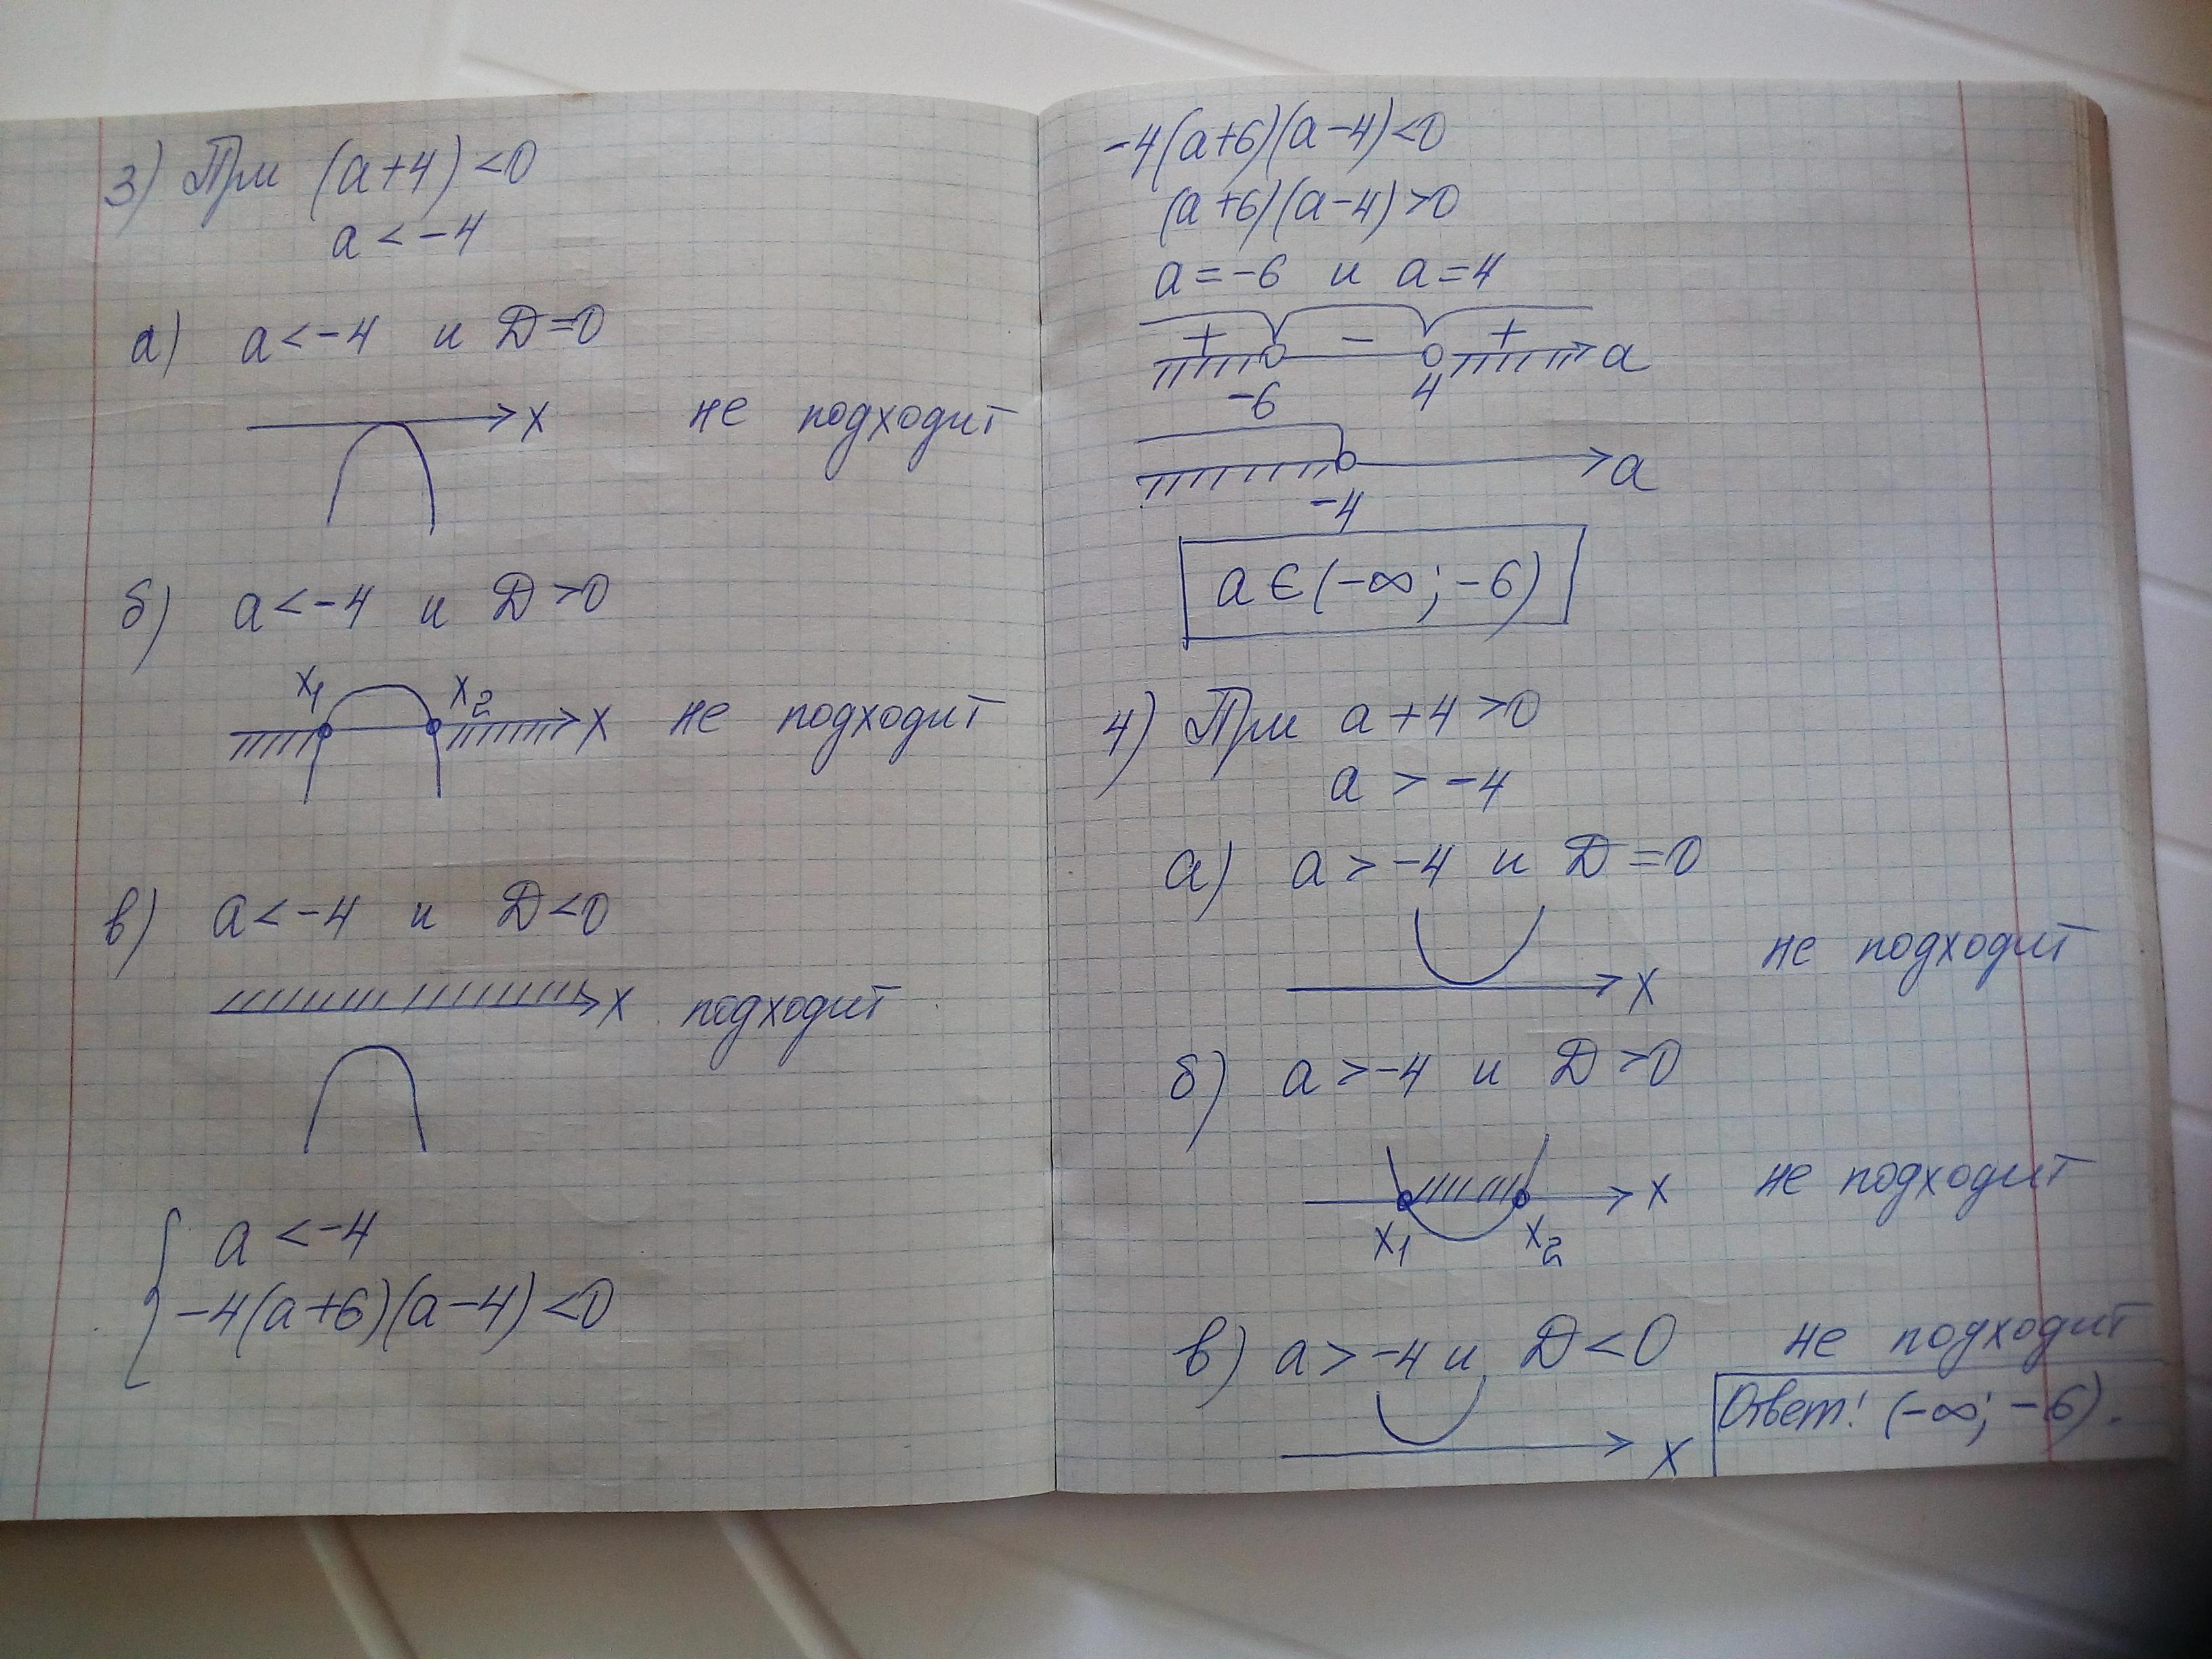 3) При (a+4)<0
a<-4
а) a<-4 и D=0
x не подходит
б) a<-4 и D>0
x₁ x₂ x не подходит
в) a<-4 и D<0
x подходит
{ a<-4
-4(a+6)(a-4)<0
-4(a+6)(a-4)<0
(a+6)(a-4)>0
a=-6 и a=4
+ - + a
-6 4
a
-4
a∈(-∞;-6)
4) При a+4>0
a>-4
а) a>-4 и D=0
x не подходит
б) a>-4 и D>0
x₁ x₂ x не подходит
в) a>-4 и D<0 не подходит
x
Ответ: (-∞;-6).